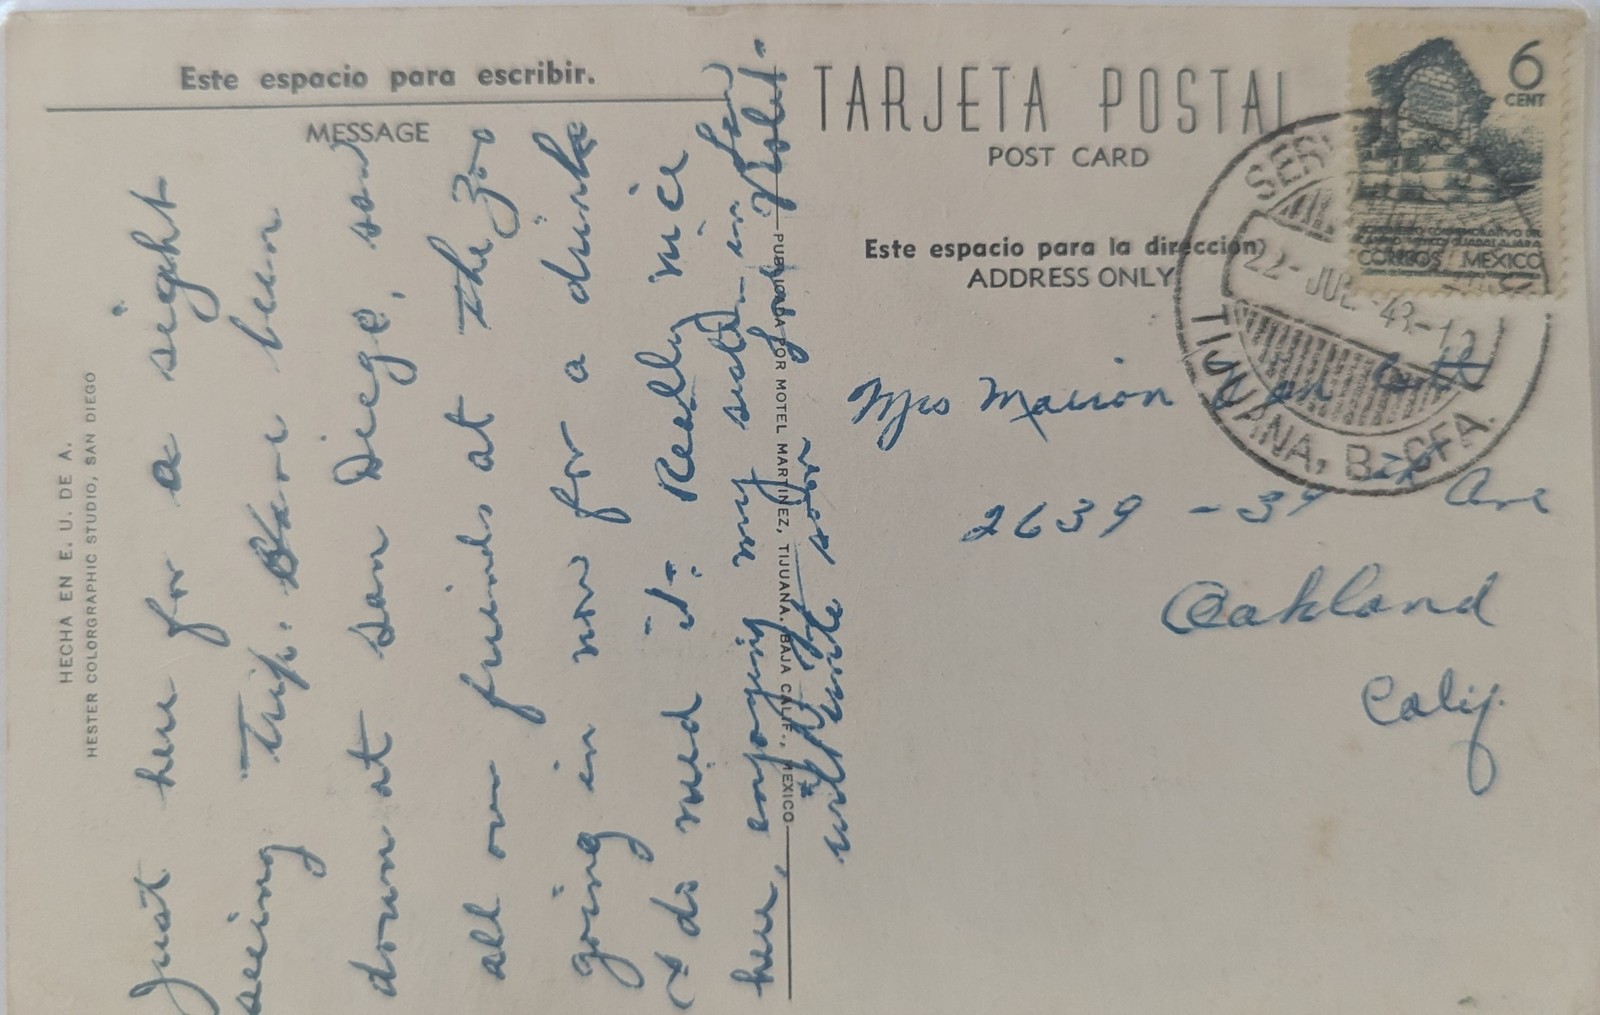 Este espacio para escribir.
MESSAGE
HECHA EN E. U. DE A.
HESTER COLORGRAPHIC STUDIO, SAN DIEGO
Just here for a sight
seeing Trip. Have been
down at San Diego, saw
all our friends at the Zoo
going in now for a drink
& do need it. Really nice
here, enjoying my
will write soon
PUBLICADA POR MOTEL MARTINEZ, TIJUANA. BAJA CALIF., MEXICO
TARJETA POSTAL
POST CARD
Este espacio para la dirección)
ADDRESS ONLY
6
CENT
CORREOS MEXICO
22-JUL-43-12
TIJUANA, B. CFA.
Mrs Marion
2639 - 39 Ave
Oakland
Calif.